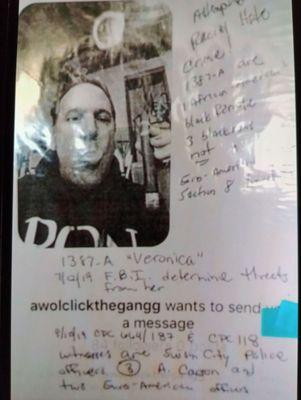 Racial Hate
Crime
1387-A are
African American
black
3 black
not
Euro-American
Section 8
RON
1387-A "Veronica"
F.B.I. determine threats
from her
awolclickthegangg wants to send
a message
CPC 664/187 & CPC 118
witnesses are Suisun City Police
officers (3) A. Cagon and
two Euro-American officers